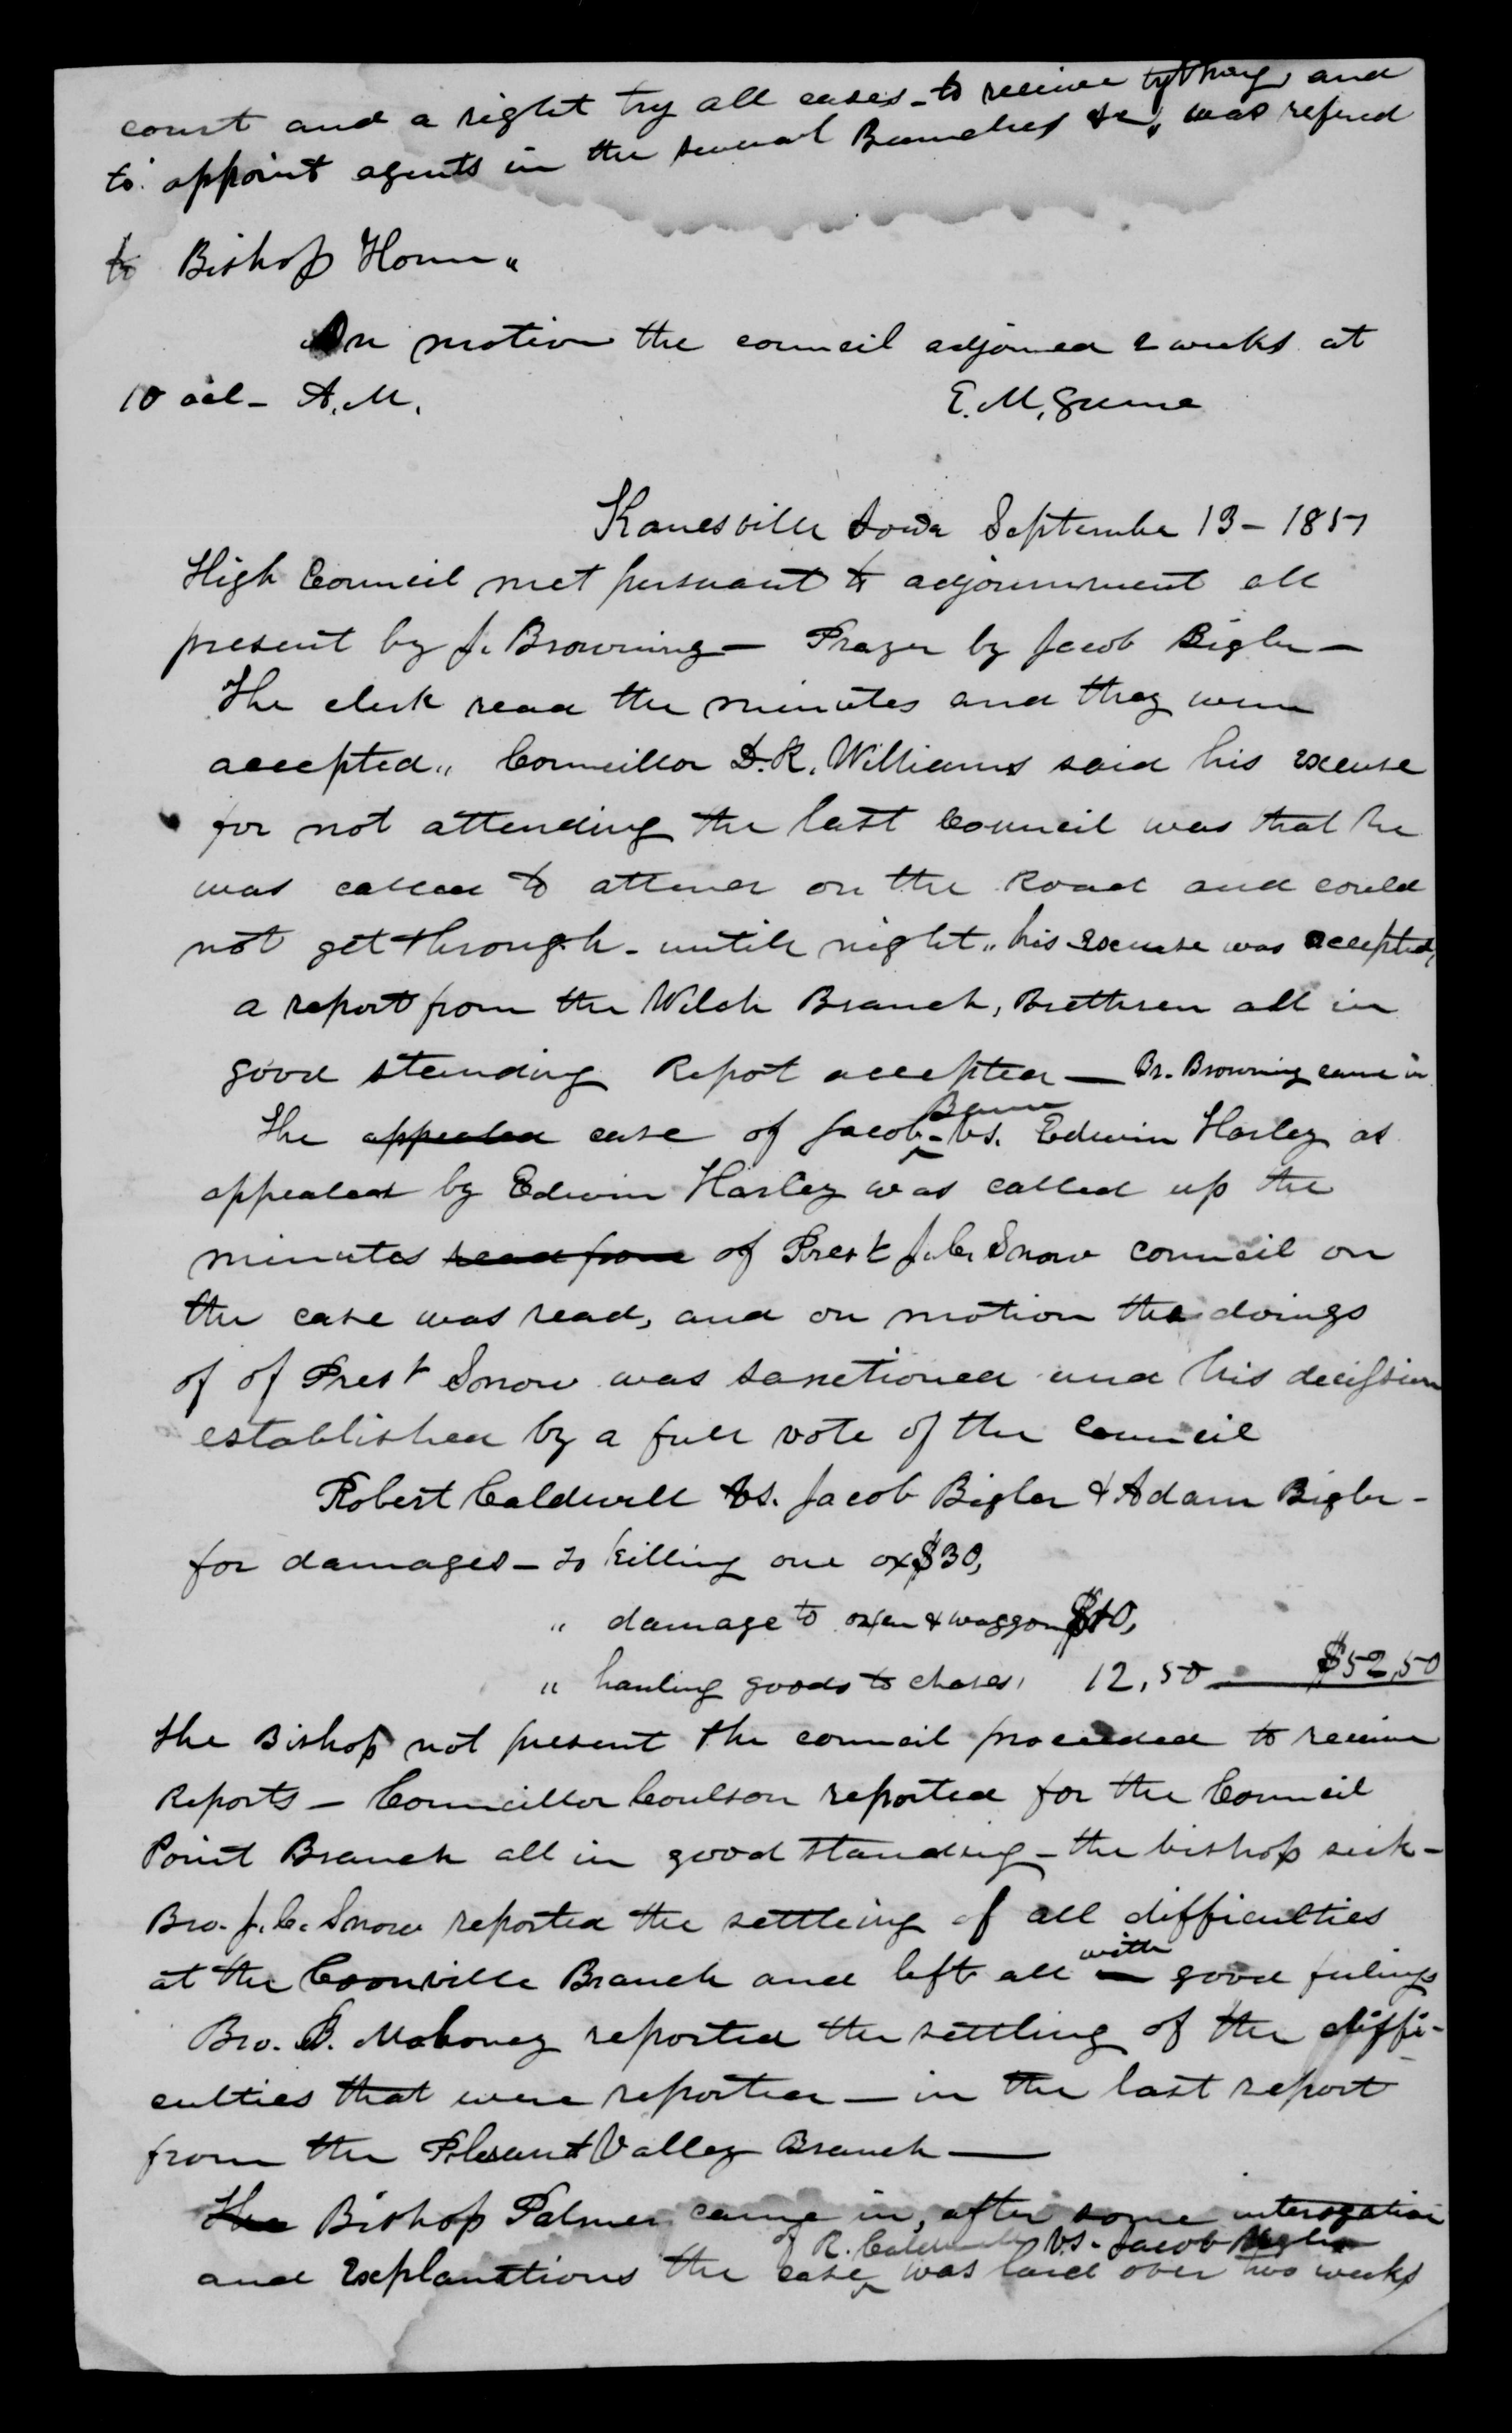 court and a right try all cases - to receive tything and
to appoint agents in the several Branches &c, was refered
to Bishop
On motion the council adjorned 2 weeks at
10 ocl - A.M. E. M. Greene
Kanesville Iowa September 13 - 1851
High Council met pursuant to adjournment all
present by J. Browning — Prayer by Jacob Bigler —
The clerk read the minutes and they were
accepted,, Councillor D. R. Williams said his excuse
for not attending the last Council was that he
was called to attend on the Road and could
not get through - untill night,, his excuse was accepted,
a report from the Welch Branch, Brethren all in
good standing Repot accepted — Br. Browning came in
The appealed case of Jacob - vs. Edwin Harley as
appealed by Edwin Harley was called up the
minutes read from of Prest J. C. Snow council on
the case was read, and on motion the doings
of of Prest Snow was sanctioned and his decission
established by a full vote of the Council
Robert Caldwell vs. Jacob Bigler & Adam Bigler -
for damages - to killing one ox $30,
,, damage to oxen & waggon $10,
,, hauling goods to 12,50 — $52,50
the Bishop not present the council proceeded to receive
Reports — Councillor Coulson reported for the Council
Point Branch all in good standing - the bishop sick -
Bro. J. C. Snow reported the settleing of all difficulties
at the Coonville Branch and left all with good feelings
Bro. Mahoney reported the settling of the diffi-
culties that were reported — in the last report
from the Plesant Valley Branch —
The Bishop Palmer came in, after some interogation
of R. Caldwell vs. Jacob Bigler
and Explanations the case was laid over two weeks